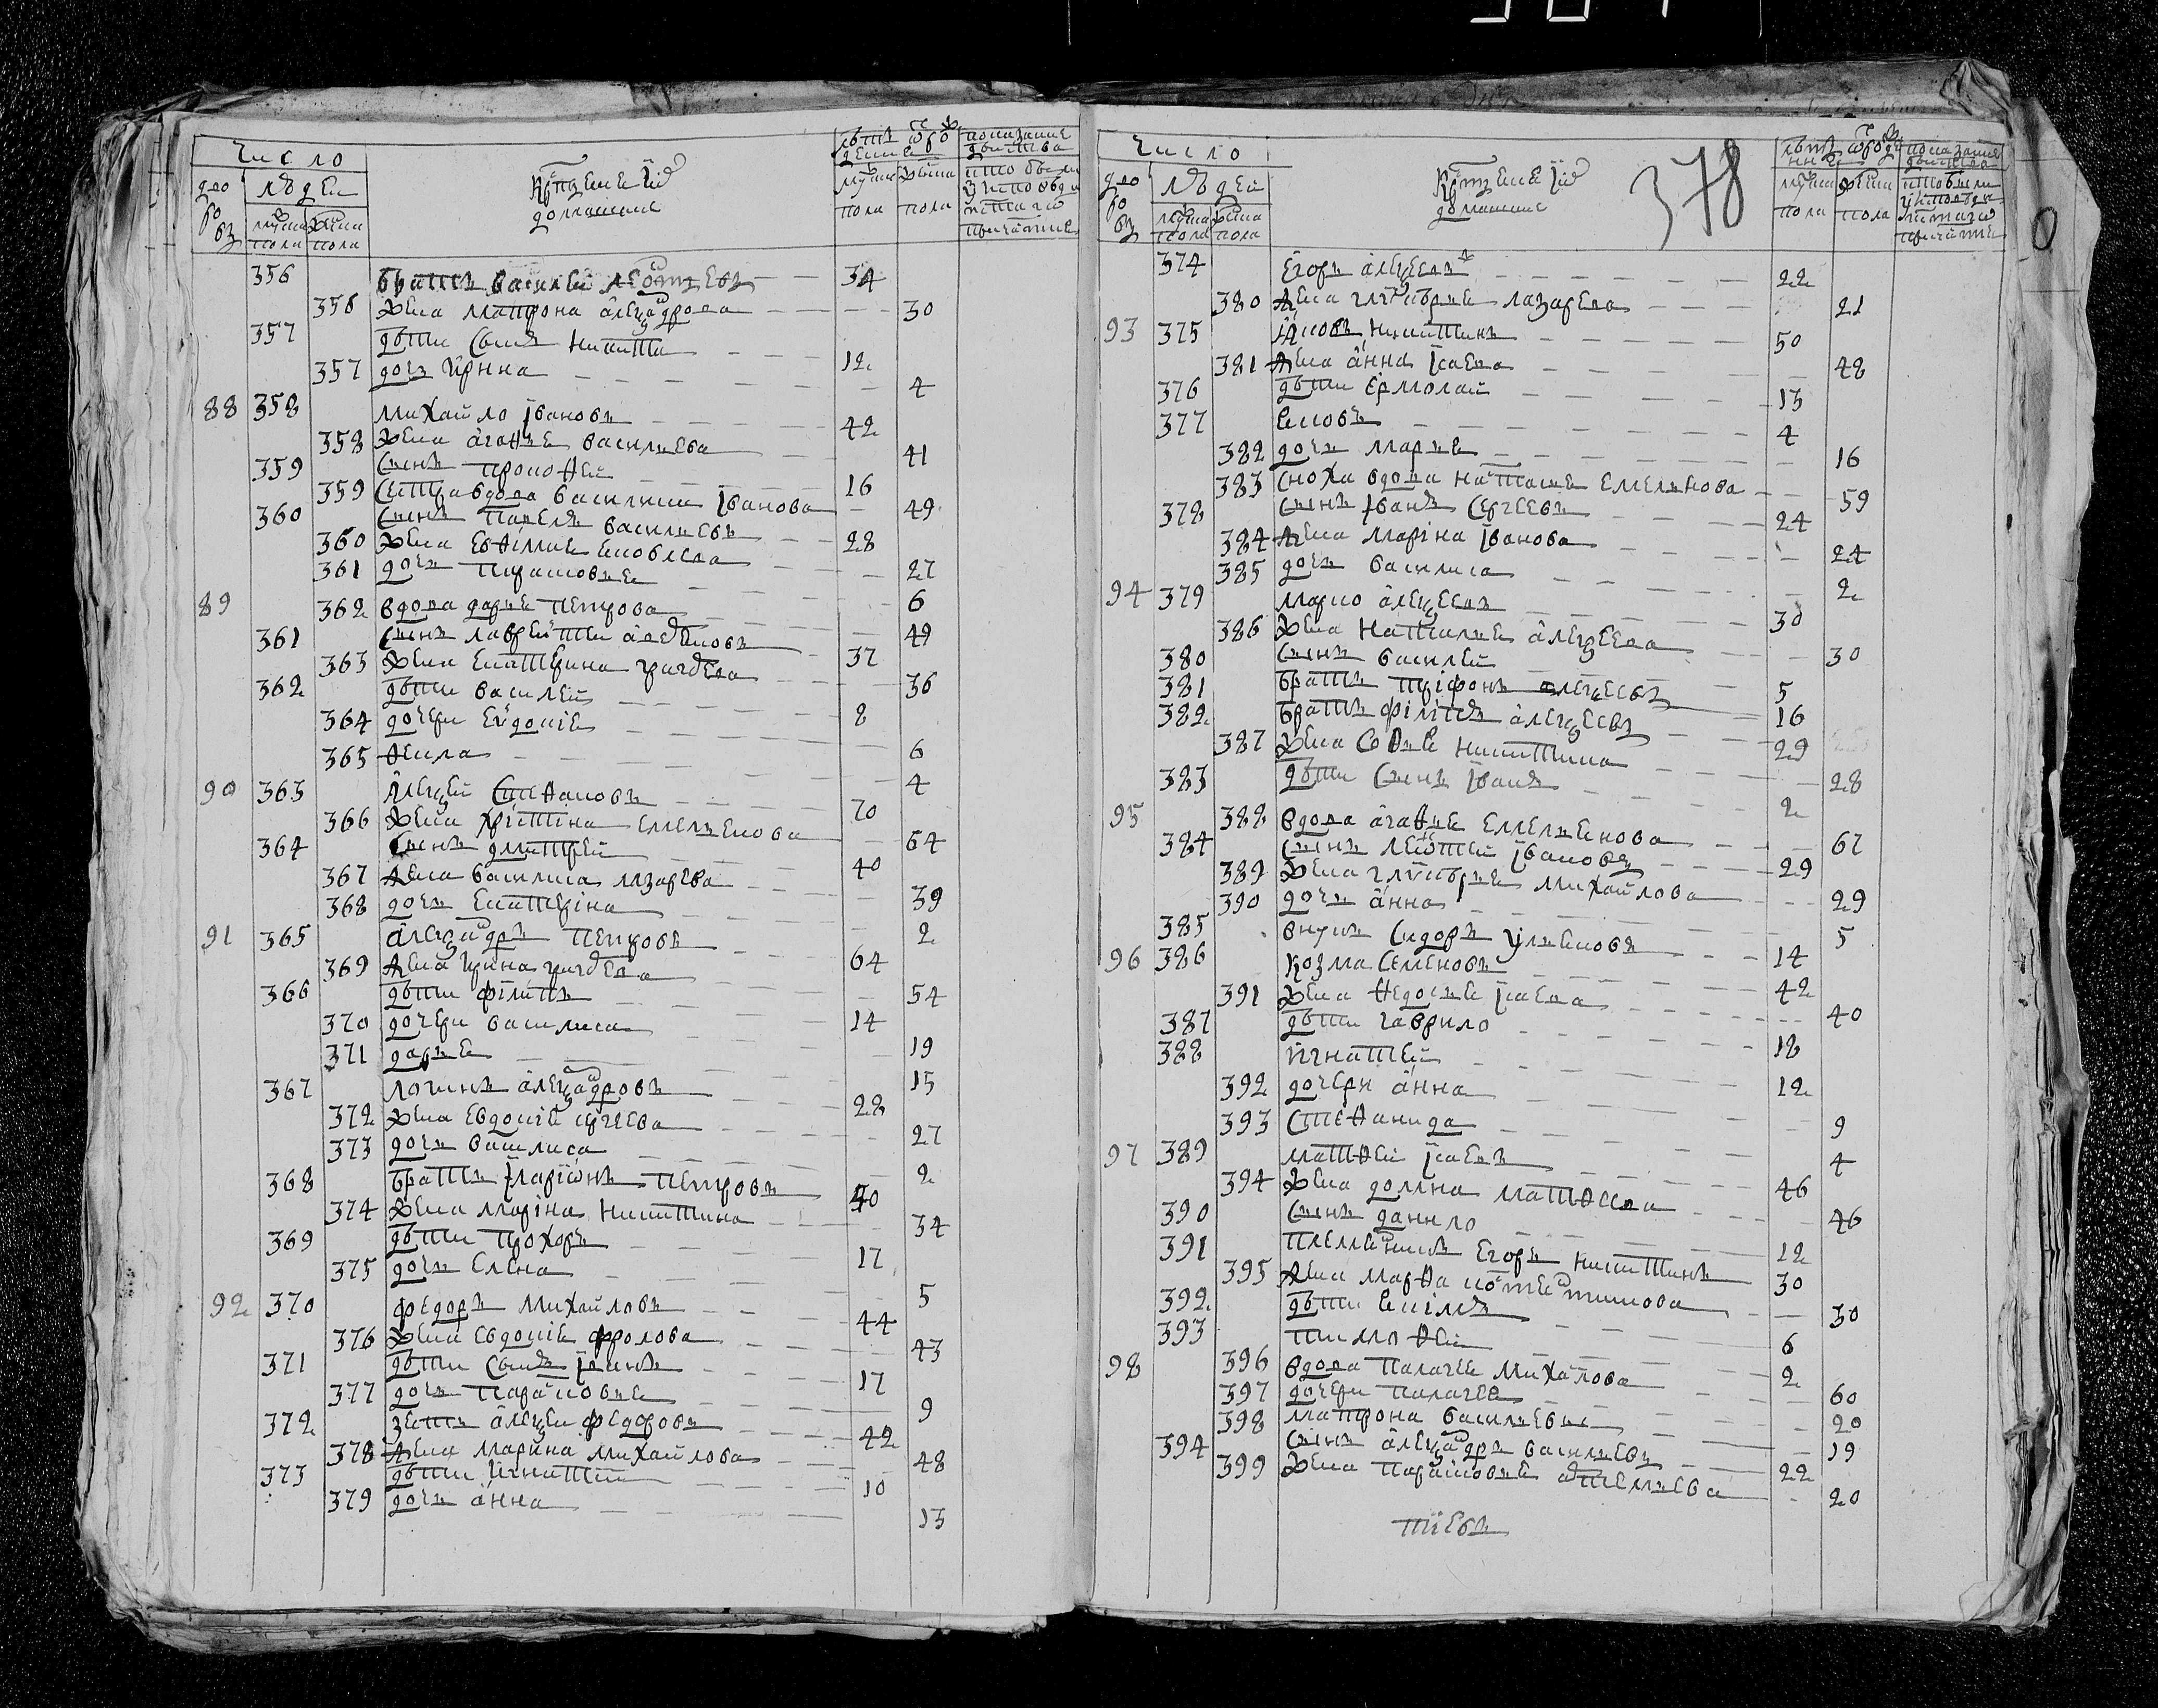 число
дворовъ
людей
мужеска пола
женска пола
крестьяне и их домашние
лѣтъ от рождения
мужска пола
женска пола
показание действа
кто был ли у исповеди и святаго причастие
356 братъ василей леонтьевъ 34
356 жена матрона алеѯандрова 30
357 дѣти сынъ никита 12
357 дочь ирина 4
88 358 михайло ивановъ 42
358 жена агаѳия васильева 41
359 сынъ прокоѳей 16
359 сестра вдова василиса иванова 49
360 сынъ павелъ васильевъ 28
360 жена евѳимия яковлева 27
361 дочь парасковья 6
89 362 вдова дарья петрова 49
361 сынъ лаврентей 37
363 жена екатерина григорева 36
362 дѣти василей 8
364 дочери евдокия 6
365 ѳекла 4
90 363 алеѯей стеѳановъ 70
366 жена христина емельянова 64
364 сынъ дмитрей 40
367 жена василиса лазарева 39
368 дочь екатерина 2
91 365 алеѯандръ петровъ 64
369 жена ирина григорева 54
366 дѣти филипъ 14
370 дочери василиса 19
371 дарья 15
367 логинъ алеѯандровъ 28
372 жена евдокия сергеева 27
373 дочь василиса 2
368 братъ иларионъ петровъ 40
374 жена марина никитина 34
369 дѣти прохоръ 17
375 дочь елена 5
92 370 федоръ михайловъ 44
376 жена евдокия фролова 43
371 дѣти сынъ иванъ 17
377 дочь парасковья 9
372 зять алеѯей федоровъ 42
378 жена марина михайлова 48
373 дѣти игнатей 10
379 дочь анна 13
378
число
дворовъ
людей
мужеска пола
женска пола
крестьяне и их домашние
лѣтъ от рождения
мужска пола
женска пола
показание действа
кто был ли у исповеди и святаго причастие
374 егоръ алеѯеевъ 22
380 жена гликерия лазарева 21
93 375 яковъ никитинъ 50
381 жена анна исаева 48
376 дѣти ермолай 13
377 яковъ 4
382 дочь марья 16
383 сноха вдова наталья емельянова 59
378 сынъ иванъ сергеевъ 24
384 жена марина иванова 24
385 дочь василиса 2
94 379 марко алеѯеевъ 30
386 жена наталья алеѯеева 30
380 сынъ василей 5
381 братъ триѳонъ алеѯеевъ 16
382 братъ филипъ алеѯеевъ 29
387 жена соѳья никитина 28
383 дѣти сынъ иванъ 2
95 388 вдова агаѳия емельянова 67
384 сынъ леонтей ивановъ 29
389 жена гликерия михайлова 29
390 дочь анна 5
385 внукъ сидоръ ульяновъ 14
96 386 козма семеновъ 42
391 жена ѳедосья исаева 40
387 дѣти гаврило 18
388 игнатей 12
392 дочери анна 9
393 стеѳанида 4
97 389 матѳей исаевъ 46
394 жена домна матѳеева 46
390 сынъ данило 12
391 племянникъ егоръ никитинъ 30
395 жена марѳа 30
392 дѣти екимъ 6
393 тимоѳей 2
98 396 вдова палагея михайлова 60
397 дочери палагея 20
398 матрона васильевы 19
394 сынъ алеѯандръ васильевъ 22
399 жена парасковья артемьева 20